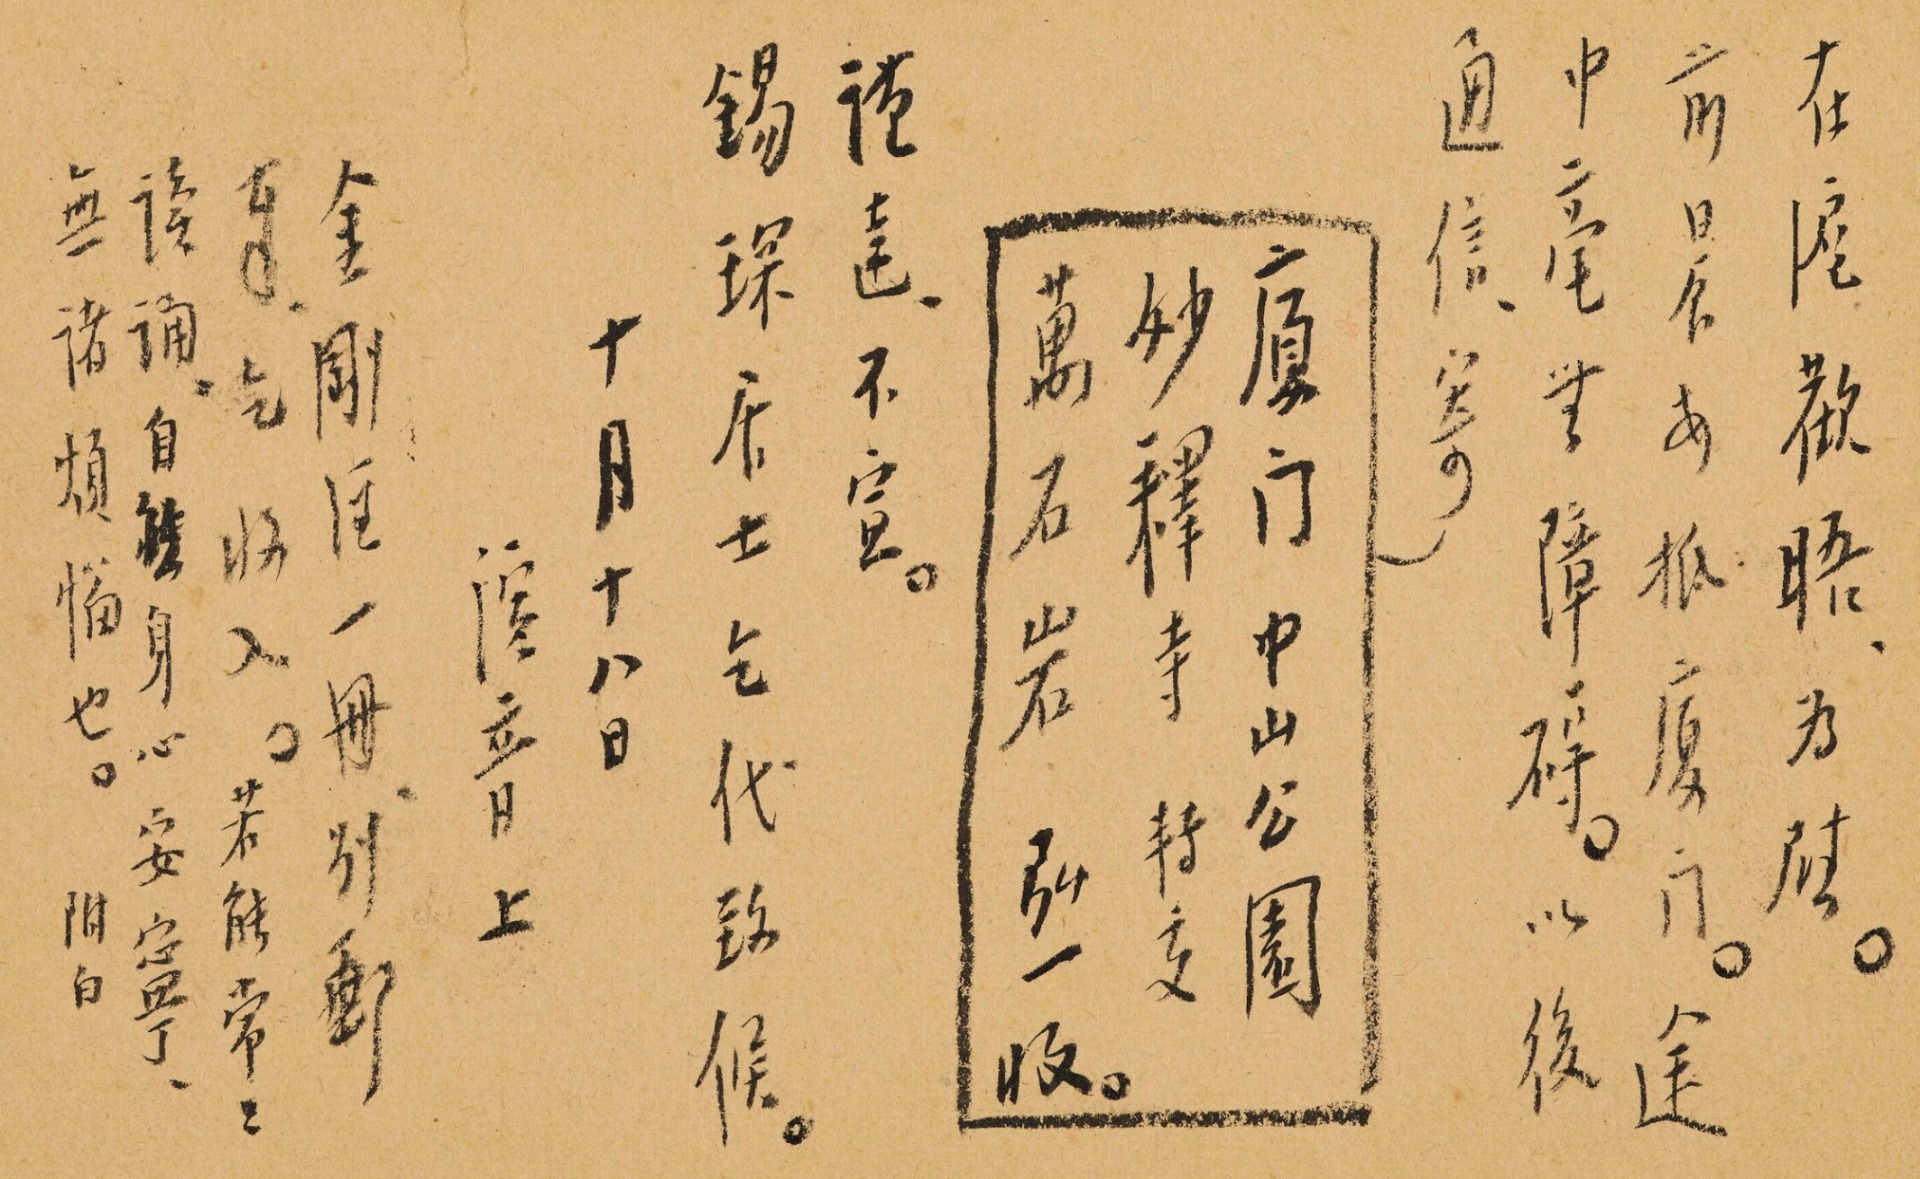 在滬歡晤、為慰。
前日居安抵廈门。途
中毫無障碍。以後
通信、寄
廈门中山公園
妙釋寺 轉交
萬石岩 弘一收。
謹達、不宣。
錫琛居士乞代致候。
十月十八日
演音上
金剛經一冊、別郵
奉、乞收入。若能常〻
讀誦、自能身心安寧、
無諸煩惱也。 附白